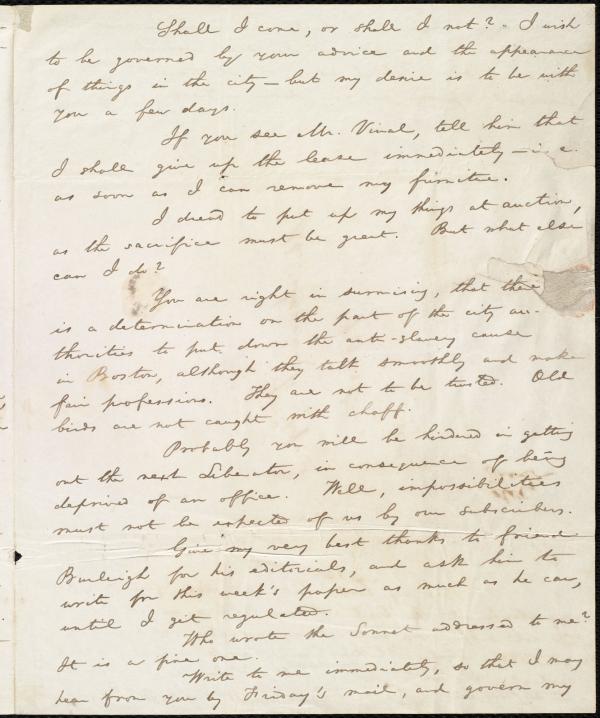 Shall I come, or shall I not? I wish
to be governed by your advice and the appearance
of things in the city — but my desire is to be with
you a few days.
If you see Mr. Vinal, tell him that
I shall give up the lease immediately — i. e.
as soon as I can remove my furnitue.
I dread to put up my things at auction,
as the sacrifice must be great. But what else
can I do?
You are right in surmising, that there
is a determination on the part of the city au-
thorities to put down the anti-slavery cause
in Boston, although they talk smoothly and make
fair professions. They are not to be trusted. Old
birds are not caught with chaff.
Probably you will be hindered in getting
out the next Liberator, in consequence of being
deprived of an office. Well, impossibilities
must not be expected of us by our subscribers.
Give my very best thanks to friend
Burleigh for his editorials, and ask him to
write for this week's paper as much as he can,
until I get regulated.
Who wrote the Sonnet addressed to me?
It is a fine one.
Write to me immediately, so that I may
hear from you by Friday's mail, and govern my